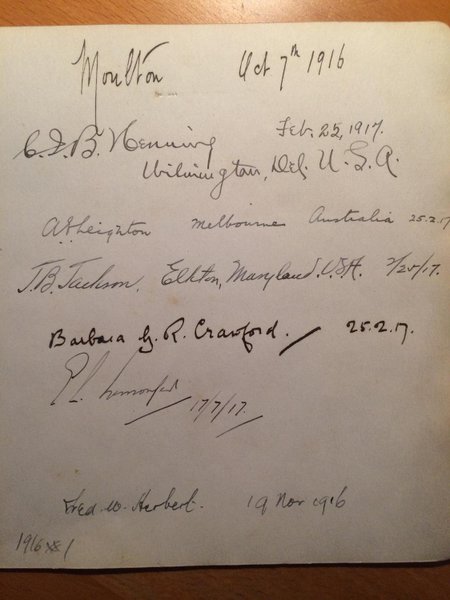 Moulton Oct 7th 1916
Feb. 25, 1917.
C. F. B. Henning
Wilmington, Del. U.S.A.
A E Leighton Melbourne Australia 25.2.17
J. B. Jackson. Elkton, Maryland. U.S.A. 2/25/17.
Barbara G. R. Crawford. 25.2.17.
17/7/17.
Fred. W. Herbert. 19 Nov 1916
1916